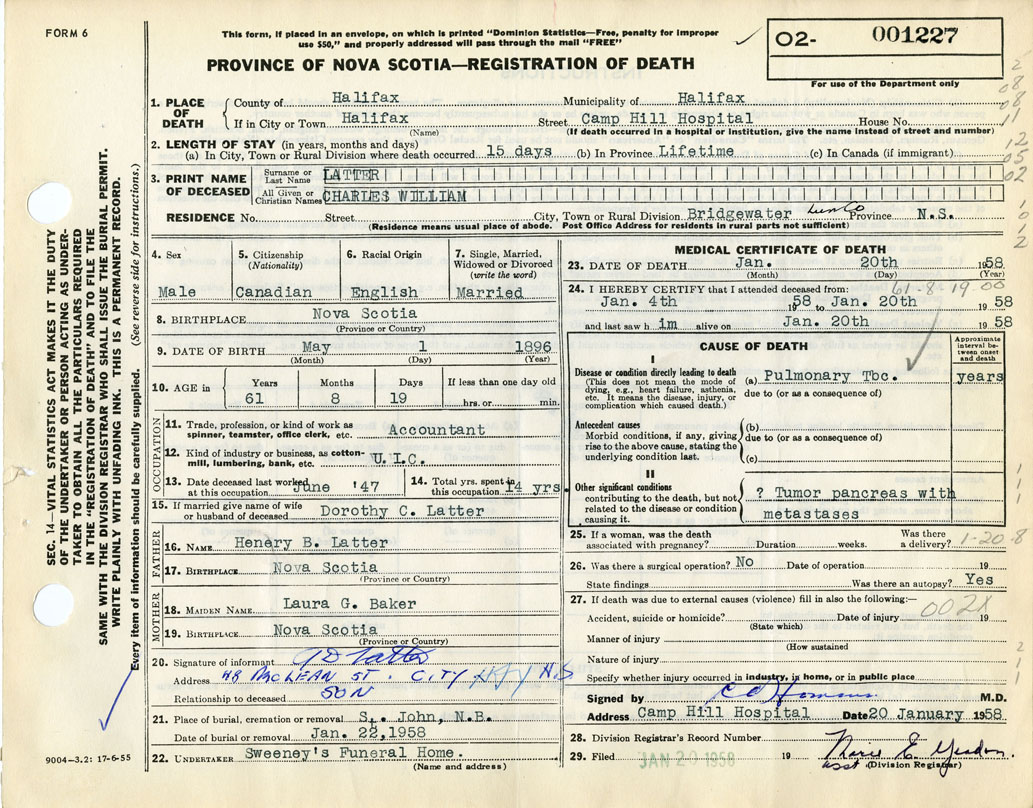 FORM 6
This form, if placed in an envelope, on which is printed "Dominion Statistics—Free, penalty for improper
use $50," and properly addressed will pass through the mail "FREE"
02- 001227
For use of the Department only
PROVINCE OF NOVA SCOTIA—REGISTRATION OF DEATH
SEC. 14—VITAL STATISTICS ACT MAKES IT THE DUTY
OF THE UNDERTAKER OR PERSON ACTING AS UNDER-
TAKER TO OBTAIN ALL THE PARTICULARS REQUIRED
IN THE "REGISTRATION OF DEATH" AND TO FILE THE
SAME WITH THE DIVISION REGISTRAR WHO SHALL ISSUE THE BURIAL PERMIT.
WRITE PLAINLY WITH UNFADING INK. THIS IS A PERMANENT RECORD.
Every item of information should be carefully supplied. (See reverse side for instructions.)
1. PLACE OF DEATH County of Halifax Municipality of Halifax
If in City or Town Halifax Street Camp Hill Hospital House No.
(Name) (If death occurred in a hospital or institution, give the name instead of street and number)
2. LENGTH OF STAY (in years, months and days)
(a) In City, Town or Rural Division where death occurred 15 days (b) In Province Lifetime (c) In Canada (if immigrant)
3. PRINT NAME OF DECEASED Surname or Last Name LATTER
All Given or Christian Names CHARLES WILLIAM
RESIDENCE No. Street City, Town or Rural Division Bridgewater Lun Co Province N.S.
(Residence means usual place of abode. Post Office Address for residents in rural parts not sufficient)
4. Sex Male
5. Citizenship (Nationality) Canadian
6. Racial Origin English
7. Single, Married, Widowed or Divorced (write the word) Married
8. BIRTHPLACE Nova Scotia
(Province or Country)
9. DATE OF BIRTH May 1 1896
(Month) (Day) (Year)
10. AGE in Years Months Days If less than one day old
61 8 19 hrs. or min.
OCCUPATION
11. Trade, profession, or kind of work as spinner, teamster, office clerk, etc. Accountant
12. Kind of industry or business, as cotton-mill, lumbering, bank, etc. U.I.C.
13. Date deceased last worked at this occupation June '47
14. Total yrs. spent in this occupation 14 yrs.
15. If married give name of wife or husband of deceased Dorothy C. Latter
FATHER
16. NAME Henery B. Latter
17. BIRTHPLACE Nova Scotia
(Province or Country)
MOTHER
18. MAIDEN NAME Laura G. Baker
19. BIRTHPLACE Nova Scotia
(Province or Country)
20. Signature of informant Latter
Address McLEAN ST. CITY Hfx N.S
Relationship to deceased SON
21. Place of burial, cremation or removal St. John, N.B.
Date of burial or removal Jan. 22,1958
22. UNDERTAKER Sweeney's Funeral Home.
(Name and address)
9004—3.2: 17-6-55
MEDICAL CERTIFICATE OF DEATH
23. DATE OF DEATH Jan. 20th 1958
(Month) (Day) (Year)
61-8-19 00
24. I HEREBY CERTIFY that I attended deceased from:
Jan. 4th 1958 to Jan. 20th 1958
and last saw h im alive on Jan. 20th 1958
CAUSE OF DEATH
Approximate interval between onset and death
I
Disease or condition directly leading to death
(This does not mean the mode of dying, e.g., heart failure, asthenia, etc. It means the disease, injury, or complication which caused death.)
(a) Pulmonary Tbc. years
due to (or as a consequence of)
Antecedent causes
Morbid conditions, if any, giving rise to the above cause, stating the underlying condition last.
(b)
due to (or as a consequence of)
(c)
II
Other significant conditions
contributing to the death, but not related to the disease or condition causing it.
? Tumor pancreas with
metastases
25. If a woman, was the death associated with pregnancy? Duration weeks. Was there a delivery? 1-20-8
26. Was there a surgical operation? No Date of operation 19
State findings Was there an autopsy? Yes
27. If death was due to external causes (violence) fill in also the following:—
002X
Accident, suicide or homicide? Date of injury 19
(State which)
Manner of injury
(How sustained
Nature of injury
Specify whether injury occurred in industry, in home, or in public place
Signed by M.D.
Address Camp Hill Hospital Date 20 January 1958
28. Division Registrar's Record Number
29. Filed JAN 20 1958 19 Marie E.
asst (Division Registrar)